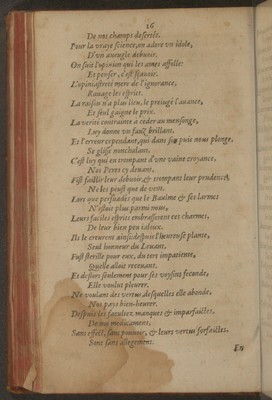 16
De nos champs deserts.
Pour la vraye science, on adore vn idole,
D'vn aueugle debuoir.
On suit l'opinion qui les ames affolle:
Et penser, c'est sçauoir.
L'opiniastreté mere de l'ignorance,
Rauage les esprits.
La raison n'a plus lieu, le preiugé l'auance,
Et seul gaigne le prix.
La verité contrainte à ceder au mensonge,
Luy donne vn faulx brillant.
Et l'erreur cependant, qui dans son puis nous plonge,
Se glisse nonchalant.
C'est luy qui en trompant d'vne vaine croyance,
Nos Peres cy deuant.
Fist faillir leur debuoir, & trompant leur prudence,
Ne les peust que de vent.
Lors que persuadés que le Baulme & ses larmes
N'estoit plus parmi nous,
Leurs faciles esprits embrasserent ces charmes,
De leur bien peu ialoux.
Ils le creurent ainsi: despuis l'heureuse plante,
Seul honneur du Leuant,
Fust sterille pour eux, du tort impatiente,
Qu'elle aloit receuant.
Et desiors seulement pour ses voysins feconde,
Elle voulut pleurer.
Ne voulant des vertus, desquelles elle abonde,
Nos pays bien-heurer.
Despuis les facultez manques & imparfaictes,
De nos medicamens,
Sans effect, sans pouuoir, & leurs vertus forfaictes,
Sont sans allegement.